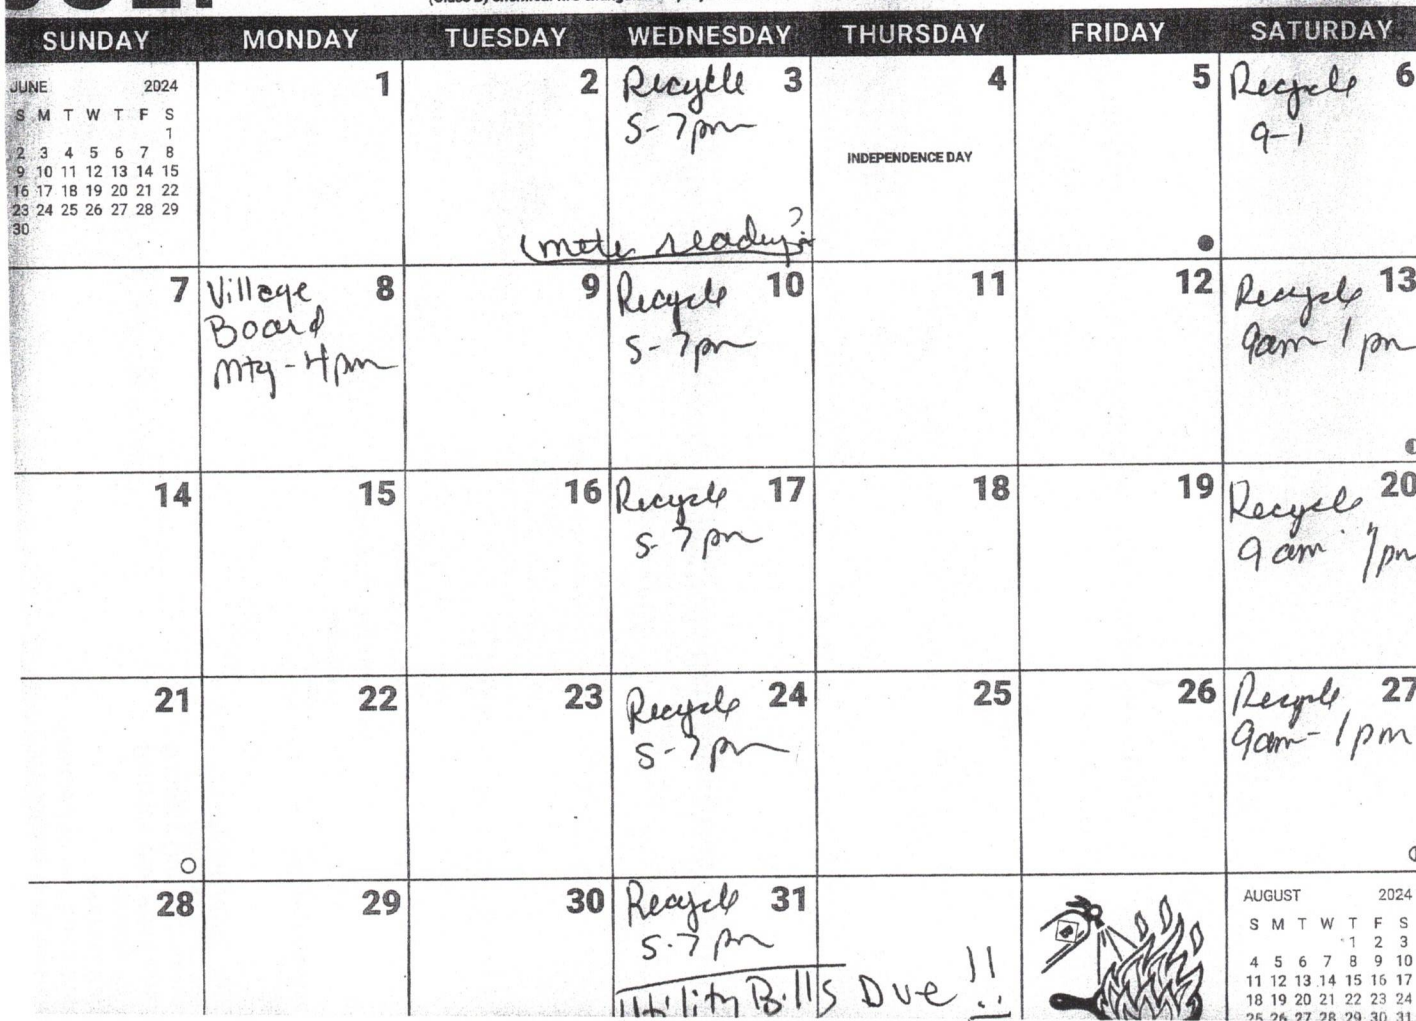 SUNDAY MONDAY TUESDAY WEDNESDAY THURSDAY FRIDAY SATURDAY
JUNE 2024
S M T W T F S
1
2 3 4 5 6 7 8
9 10 11 12 13 14 15
16 17 18 19 20 21 22
23 24 25 26 27 28 29
30
1
2
Recycle 3
5-7pm
4
INDEPENDENCE DAY
5
Recycle 6
9-1
7
Village 8
Board
mtg - 4pm
9
Recycle 10
5-7pm
11
12
Recycle 13
9am 1pm
14
15
16
Recycle 17
5-7pm
18
19
Recycle 20
9am 1pm
21
22
23
Recycle 24
5-7pm
25
26
Recycle 27
9am-1pm
28
29
30
Recycle 31
5-7pm
Utility Bills Due !!
AUGUST 2024
S M T W T F S
1 2 3
4 5 6 7 8 9 10
11 12 13 14 15 16 17
18 19 20 21 22 23 24
25 26 27 28 29 30 31